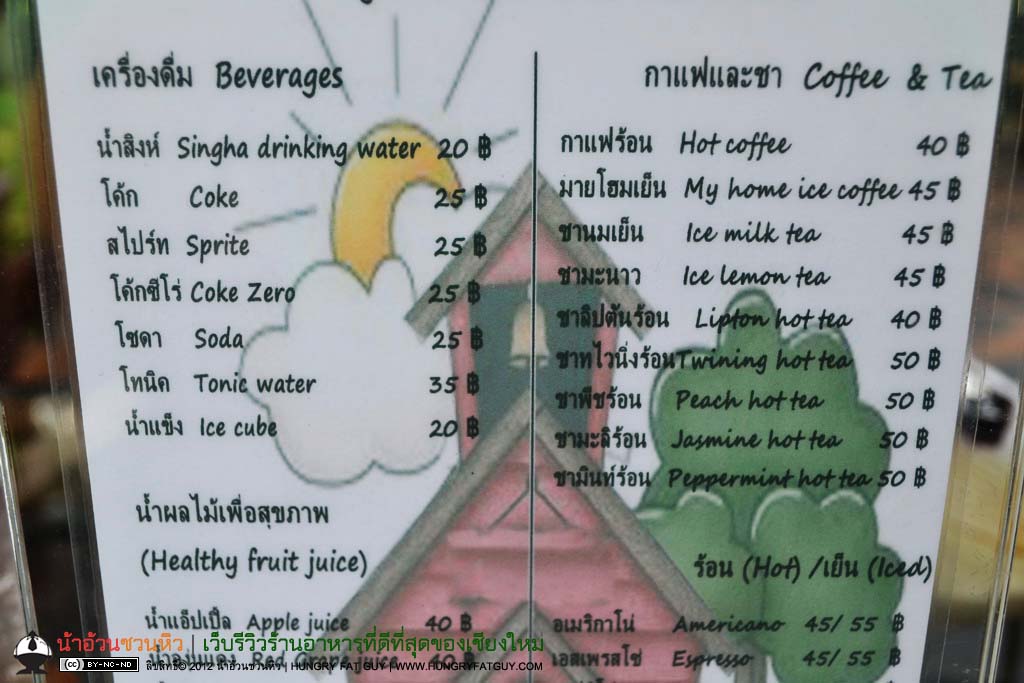 เครื่องดื่ม Beverages
น้ำสิงห์ Singha drinking water 20 ฿
โค้ก Coke 25 ฿
สไปร์ท Sprite 25 ฿
โค้กซีโร่ Coke Zero 25 ฿
โซดา Soda 25 ฿
โทนิค Tonic water 35 ฿
น้ำแข็ง Ice cube 20 ฿
น้ำผลไม้เพื่อสุขภาพ
(Healthy fruit juice)
น้ำแอ็ปเปิ้ล Apple juice 40 ฿
กาแฟและชา Coffee & Tea
กาแฟร้อน Hot coffee 40 ฿
มายโฮมเย็น My home ice coffee 45 ฿
ชานมเย็น Ice milk tea 45 ฿
ชามะนาว Ice lemon tea 45 ฿
ชาลิปตันร้อน Lipton hot tea 40 ฿
ชาทไวนิ่งร้อน Twining hot tea 50 ฿
ชาพีชร้อน Peach hot tea 50 ฿
ชามะลิร้อน Jasmine hot tea 50 ฿
ชามินท์ร้อน Peppermint hot tea 50 ฿
ร้อน (Hot) /เย็น (Iced)
อเมริกาโน่ Americano 45/ 55 ฿
เอสเพรสโซ่ Espresso 45/ 55 ฿
น้าอ้วนชวนหิว | เว็บรีวิวร้านอาหารที่ดีที่สุดของเชียงใหม่
CC BY-NC-ND ลิขสิทธิ์© 2012 น้าอ้วนชวนหิว | HUNGRY FAT GUY | WWW.HUNGRYFATGUY.COM